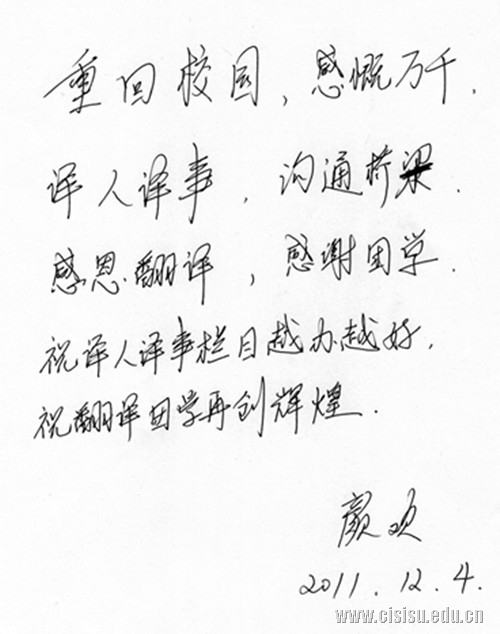 重回校园，感慨万千．
译人译事，沟通桥梁．
感恩翻译，感谢学．
祝译人译事栏目越办越好．
祝翻译学再创辉煌．
颜欢
2011．12．4．
www.cisisu.edu.cn